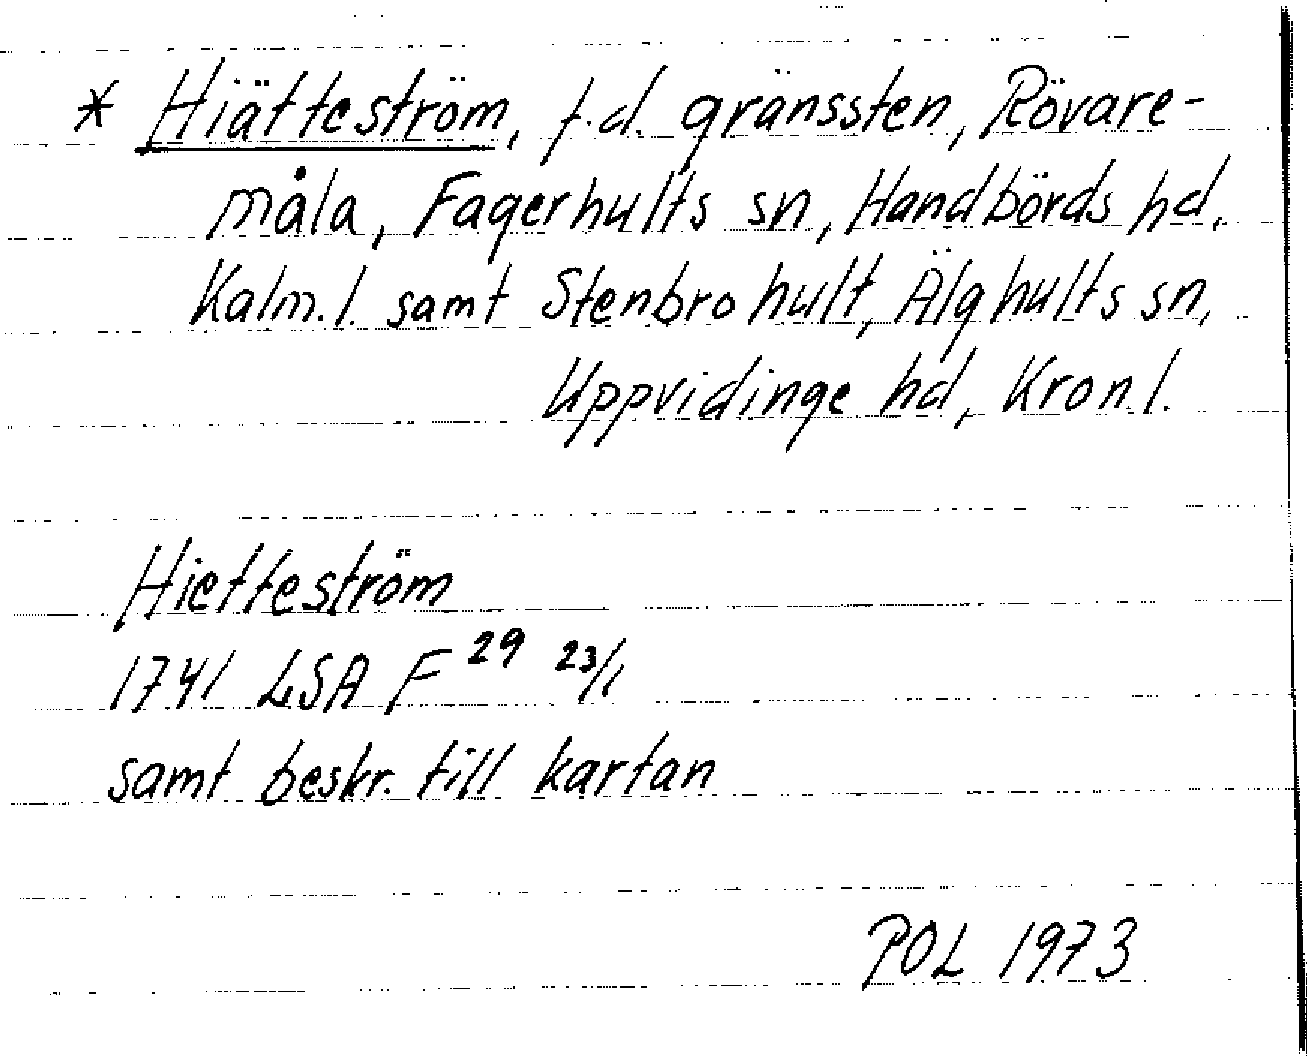 * Hiätteström, f.d. gränssten, Rövare-
måla, Fagerhults sn, Handbörds hd,
Kalm.l. samt Stenbrohult, Älghults sn,
Uppvidinge hd, Kron.l.
Hietteström
1741 LSA F 29 23/1
samt beskr. till kartan
POL 1973